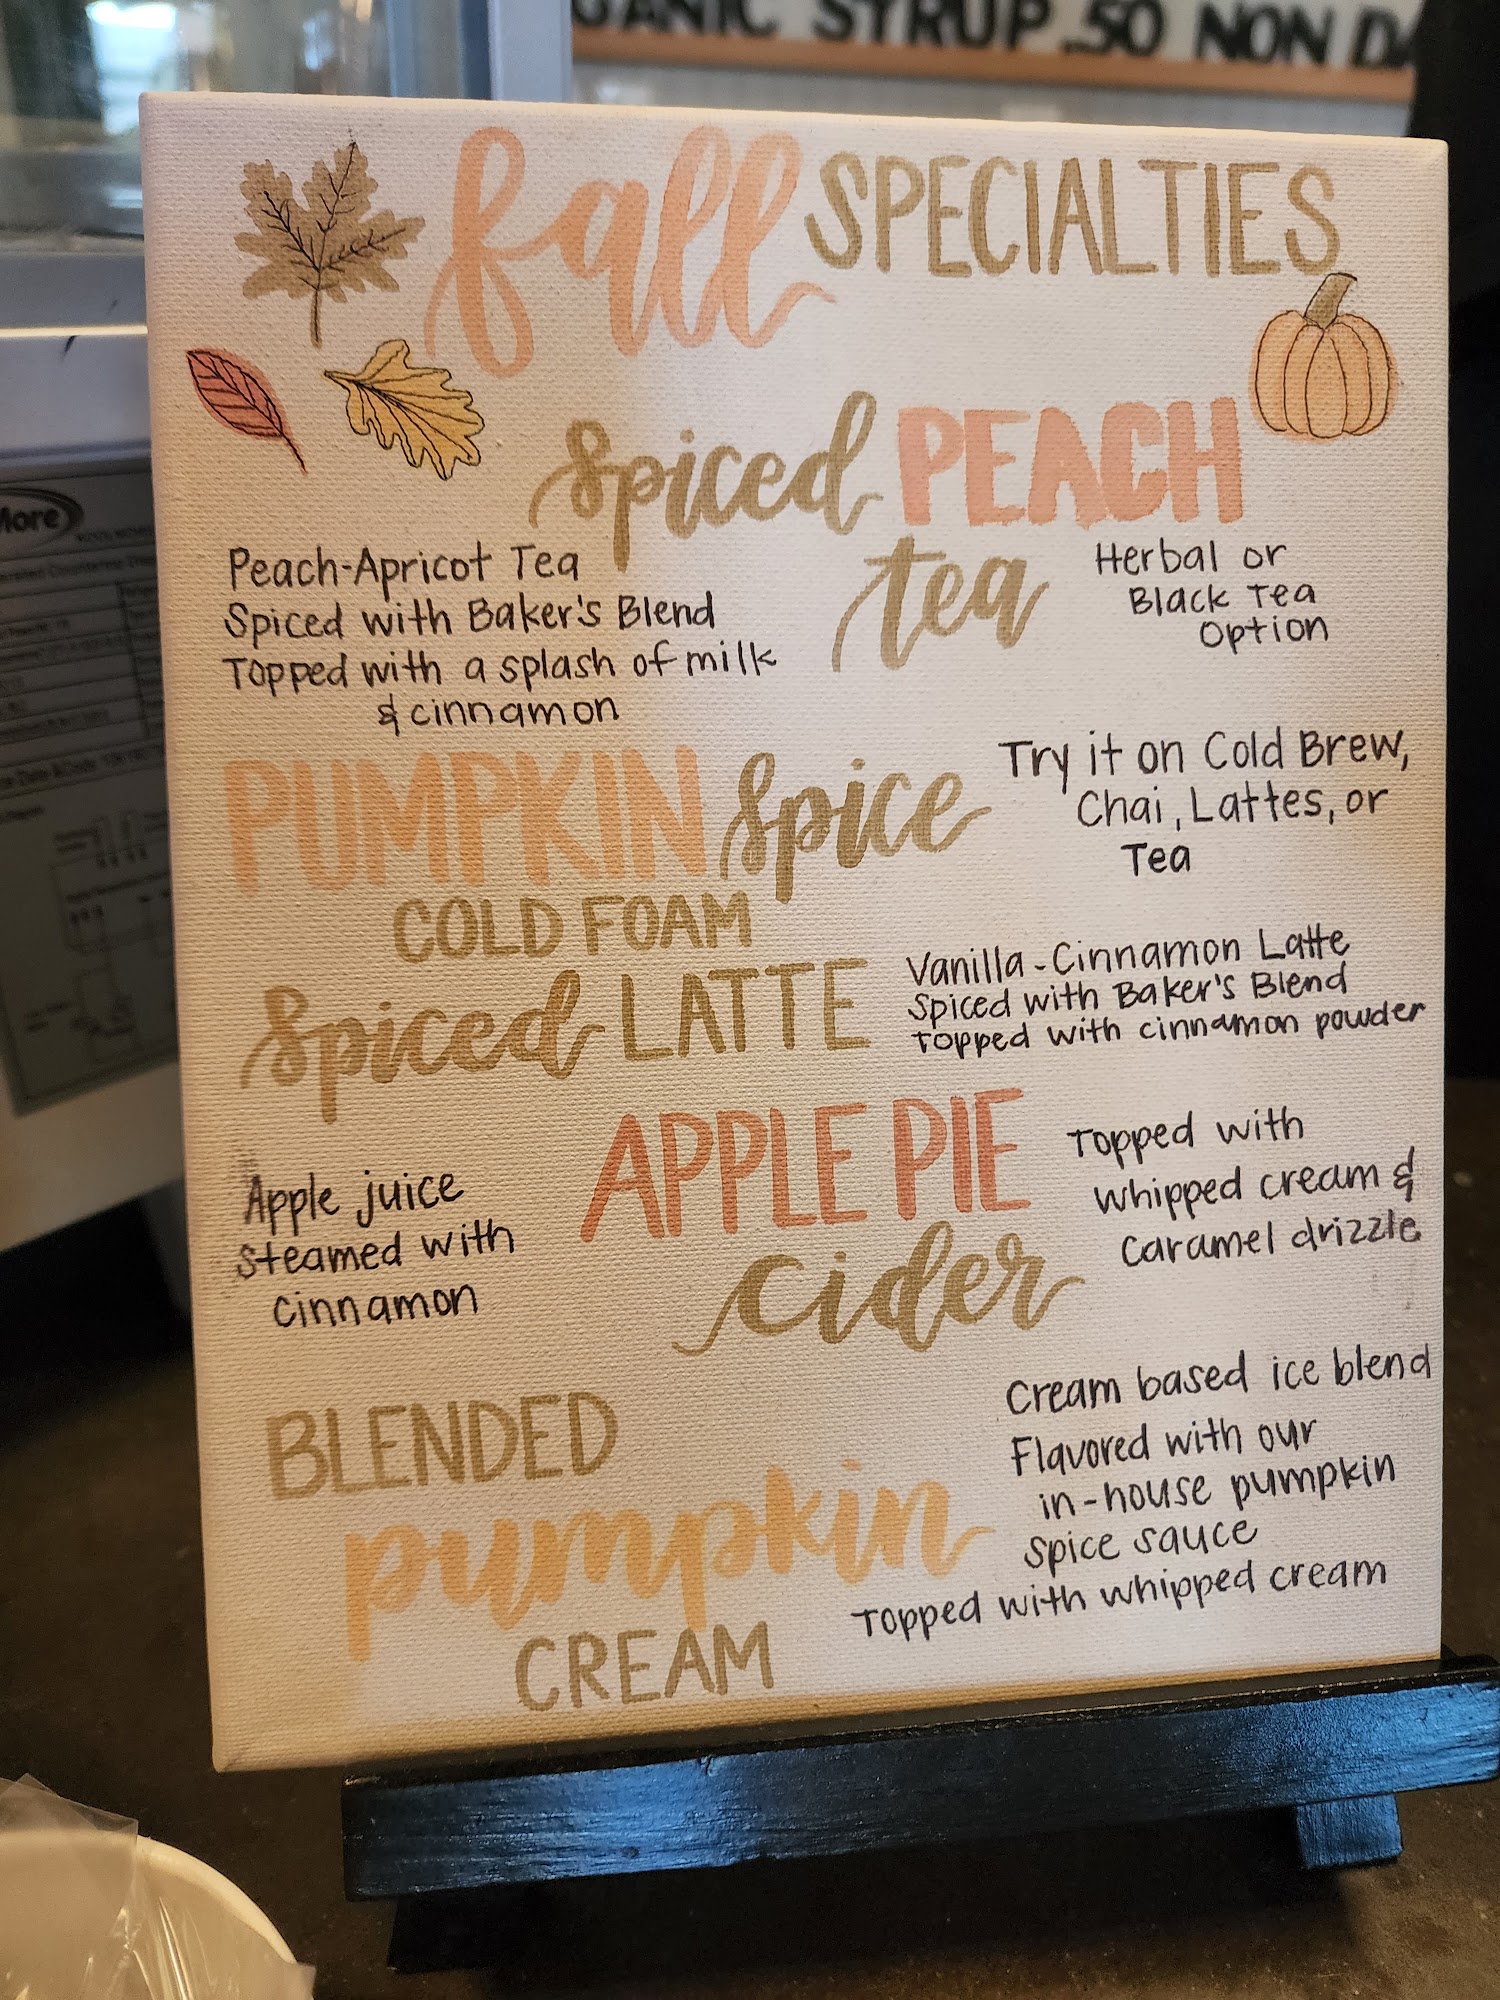 SYRUP .50 NON
fall SPECIALTIES
spiced PEACH
tea
Peach-Apricot Tea
Spiced with Baker's Blend
Topped with a splash of milk
& cinnamon
Herbal or
Black Tea
Option
PUMPKIN spice
COLD FOAM
Try it on Cold Brew,
Chai, Lattes, or
Tea
spiced LATTE
Vanilla-Cinnamon Latte
Spiced with Baker's Blend
Topped with cinnamon powder
APPLE PIE
cider
Apple juice
steamed with
cinnamon
Topped with
whipped cream &
caramel drizzle
BLENDED
pumpkin
CREAM
Cream based ice blend
Flavored with our
in-house pumpkin
spice sauce
Topped with whipped cream